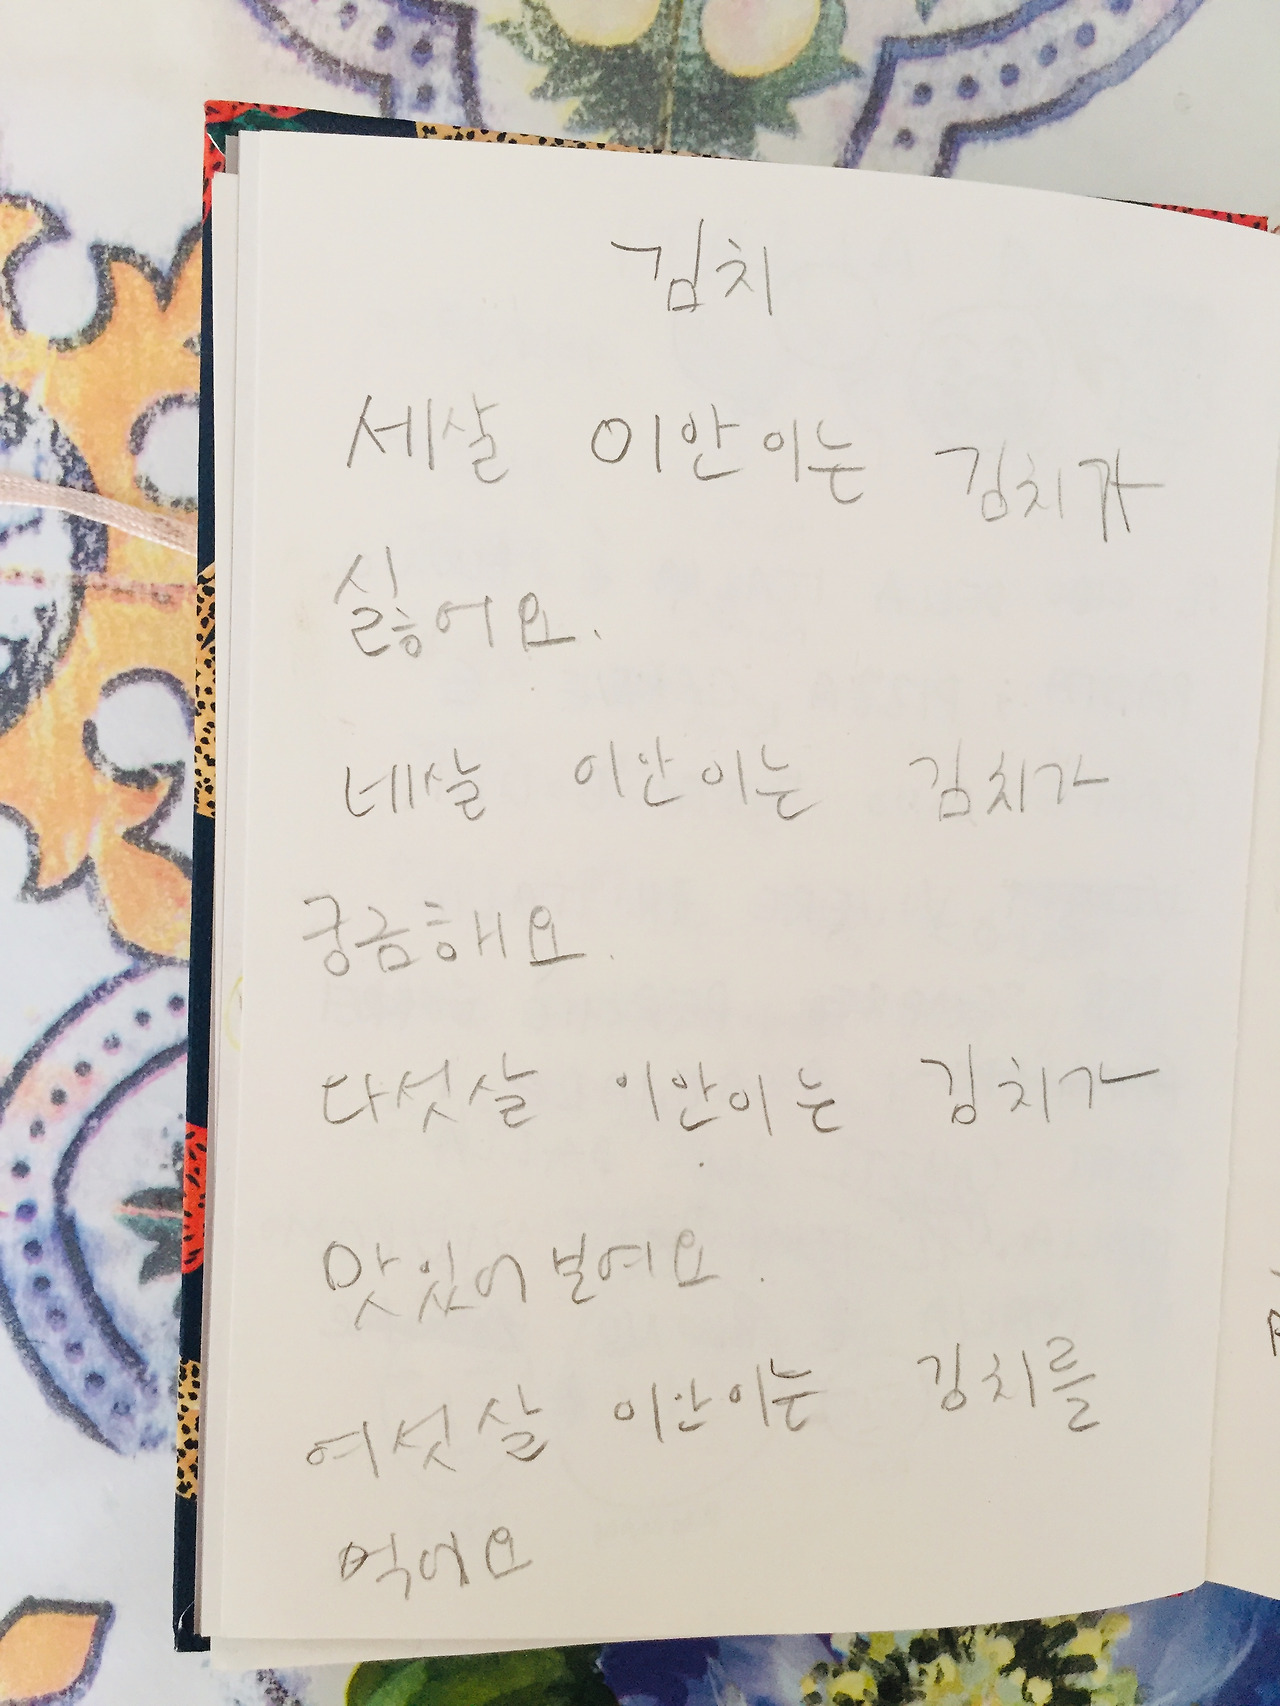 김치
세살 이안이는 김치가
싫어요.
네살 이안이는 김치가
궁금해요.
다섯살 이안이는 김치가
맛있어보여요.
여섯살 이안이는 김치를
먹어요